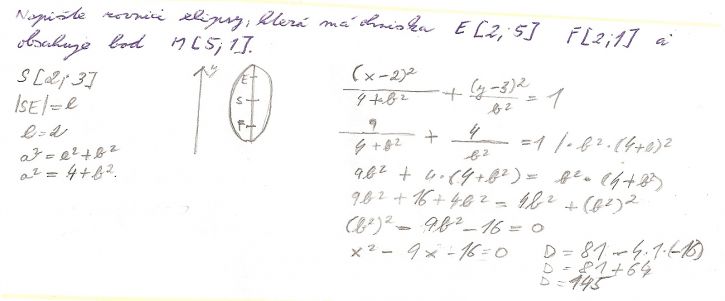 Napište rovnici elipsy, která má ohniska E[2;5] F[2;1] a
obsahuje bod M[5;1].
S[2;3]
|SE|=e
e=2
a²=e²+b²
a²=4+b².
y
E
S
F
(x-2)²/4+b² + (y-3)²/b² = 1
9/4+b² + 4/b² = 1 /·b²·(4+b)²
9b² + 4·(4+b²) = b²·(4+b²)
9b² + 16 + 4b² = 4b² + (b²)²
(b²)² - 9b² - 16 = 0
x² - 9x - 16 = 0 D = 81 - 4·1·(-16)
D = 81 + 64
D = 145